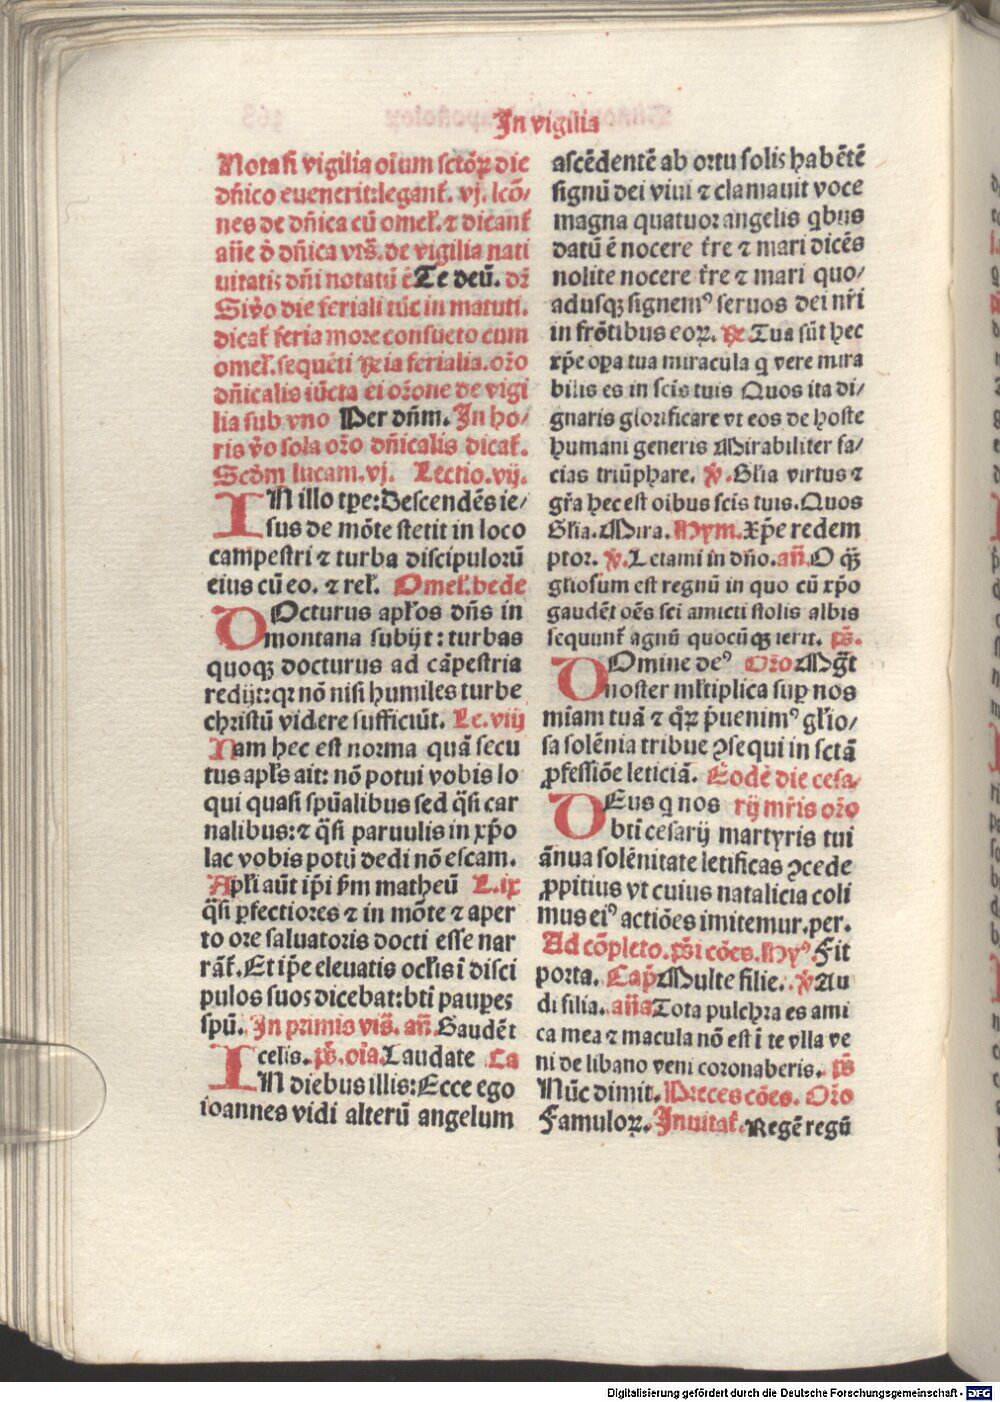 In vigilia
Nota si vigilia oīum sctōꝝ die
dn̄ico euenerit:legant̄. vj. lcō/
nes de dn̄ica cū omel̄. ⁊ dicant̄
an̄e d̄ dn̄ica vrs̄. de vigilia nati
uitatis dn̄i notatū ē Te deū. dꝛ̄
Si v̄o die feriali tūc in matuti.
dicat̄ feria more consueto cum
omel̄. sequēti ꝶia ferialia. oꝛō
dn̄icalis iūcta ei oꝛōne de vigi
lia sub vno Per dn̄m. In ho/
ris v̄o sola oꝛō dn̄icalis dicat̄.
Scd̄m lucam. vj. Lectio. vij.
IN illo tꝑe: Descendēs ie/
sus de mōte stetit in loco
campestri ⁊ turba discipuloꝛū
eius cū eo. ⁊ rel̄. Omel̄. bede
DOcturus apl̄os dn̄s in
montana subijt: turbas
quoqꝫ docturus ad cāpestria
redijt: qꝛ nō nisi humiles turbe
christū videre sufficiūt. Le. viij
Nam hec est norma quā secu
tus apl̄s ait: nō potui vobis lo
qui quasi spūalibus sed q̄si car
nalibus: ⁊ q̄si paruulis in xp̄o
lac vobis potū dedi nō escam.
Apl̄i aūt ip̄i p̄m matheū L. ix
q̄si ꝑfectioꝛes ⁊ in mōte ⁊ aper
to oꝛe saluatoꝛis docti esse nar
rāt̄. Et ip̄e eleuatis ocl̄is ī disci
pulos suos dicebat: bt̄i pauꝑes
spū. In primis vis̄. an̄. Gaudēt
celis. ps̄. oīa. Laudate Ca
IN diebus illis: Ecce ego
ioannes vidi alterū angelum
ascēdentē ab oꝛtu solis habētē
signū dei viui ⁊ clamauit voce
magna quatuoꝛ angelis qbus
datū ē nocere t̄re ⁊ mari dicēs
nolite nocere t̄re ⁊ mari quo/
adusqꝫ signemꝰ seruos dei nr̄i
in frōtibus eoꝝ. ꝶ. Tua sūt hec
xp̄e oꝑa tua miracula q vere mira
bilis es in scīs tuis Quos ita di/
gnaris gloꝛificare vt eos de hoste
humani generis Mirabiliter fa/
cias triūphare. ℣. Gl̄ia virtus ⁊
gr̄a hec est oībus scīs tuis. Quos
Gl̄ia. Mira. Hym. Xp̄e redem
ptoꝛ. ℣. Letami in dn̄o. an̄. O q̄ꝫ
gl̄iosum est regnū in quo cū xp̄o
gaudēt oēs sc̄i amicti stolis albis
sequunt̄ agnū quocūqꝫ ierit. ps̄.
DOmine deꝰ Oꝛō. Mg̅t
noster ml̄tiplica suꝑ nos
miām tuā ⁊ q̄ꝝ p̄uenimꝰ gl̄io/
sa solēnia tribue ꝯsequi in sctā
ꝓfessiōe leticiā. Eodē die cesa/
DEus q nos rij mr̄is oꝛō
bt̄i cesarij martyris tui
ānua solēnitate letificas ꝯcede
ꝓpitius vt cuius natalicia coli
mus eiꝰ actiōes imitemur. per.
Ad cōpleto. ps̄i cōes. Hyꝰ Fit
poꝛta. Cap̄ Multe filie. ℣ Au
di filia. an̄a Tota pulchꝛa es ami
ca mea ⁊ macula nō est ī te vlla ve
ni de libano veni coꝛonaberis. ps̄
Nūc dimit. Preces cōes. Oꝛō
Famuloꝝ. Inuitat̄. Regē regū
Digitalisierung gefördert durch die Deutsche Forschungsgemeinschaft - DFG